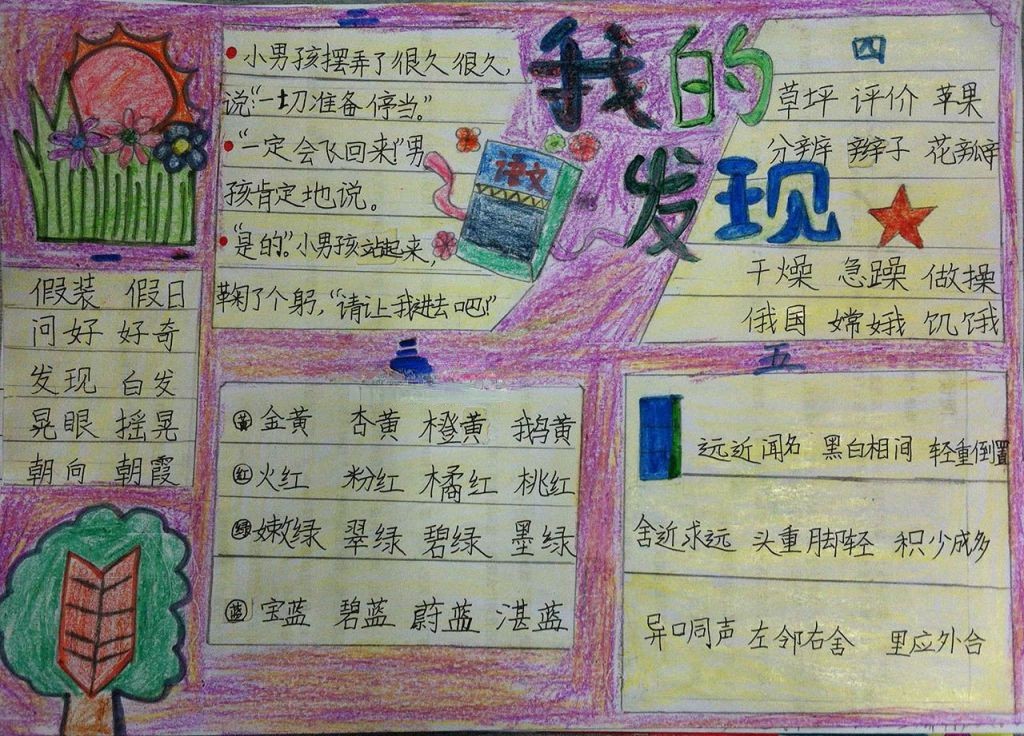 我的
发现
一
假装 假日
问好 好奇
发现 白发
晃眼 摇晃
朝向 朝霞
二
小男孩摆弄了很久很久,
说:“一切准备停当。”
“一定会飞回来!”男
孩肯定地说。
“是的。”小男孩站起来,
鞠了个躬,“请让我进去吧!”
语文
三
黄 金黄 杏黄 橙黄 鹅黄
红 火红 粉红 橘红 桃红
绿 嫩绿 翠绿 碧绿 墨绿
蓝 宝蓝 碧蓝 蔚蓝 湛蓝
四
草坪 评价 苹果
分辨 辫子 花瓣
干燥 急躁 做操
俄国 嫦娥 饥饿
五
远近闻名 黑白相间 轻重倒置
舍近求远 头重脚轻 积少成多
异口同声 左邻右舍 里应外合